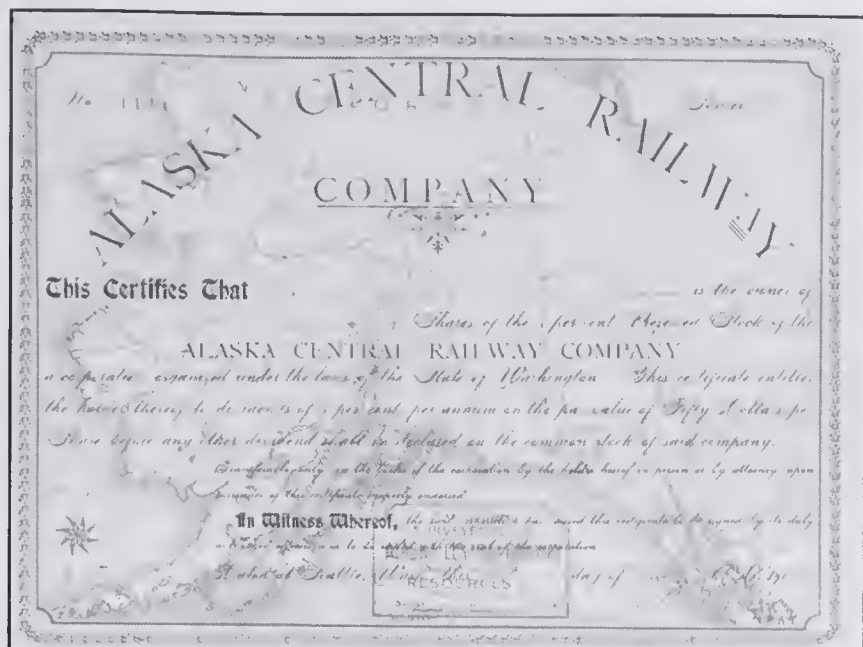 No. 1111
ALASKA CENTRAL RAILWAY
COMPANY
This Certifies That is the owner of
Shares of the per cent Preferred Stock of the
ALASKA CENTRAL RAILWAY COMPANY
a corporation organized under the laws of the State of Washington This certificate entitles
the holder thereof to dividends of per cent per annum on the par value of Fifty Dollars per
Share before any other dividend shall be declared on the common stock of said company.
Transferable only on the books of the corporation by the holder hereof in person or by attorney upon
surrender of this certificate properly endorsed
In Witness Whereof, the said corporation has caused this certificate to be signed by its duly
authorized officers and to be sealed with the seal of the corporation
Dated at Seattle, day of
RESOURCES